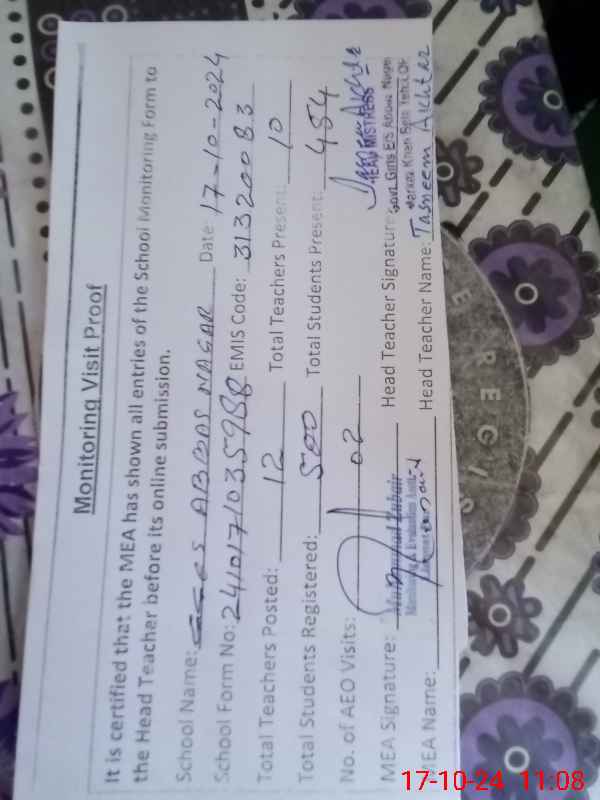 Monitoring Visit Proof
It is certified that the MEA has shown all entries of the School Monitoring Form to
the Head Teacher before its online submission.
School Name: GGES ABBAS NAGAR Date: 17-10-2024
School Form No: 2410171035988 EMIS Code: 31320083
Total Teachers Posted: 12 Total Teachers Present: 10
Total Students Registered: 500 Total Students Present: 484
No. of AEO Visits: 02
HEAD MISTRESS
MEA Signature: Head Teacher Signature:
Muhammad Zubair
Monitoring & Evaluation Asstt.
Govt. Girls E/S Abbas Nagar
Markaz Khan Bela Teh. LQP
MEA Name: Head Teacher Name: Tasneem Akhtar
17-10-24 11:08